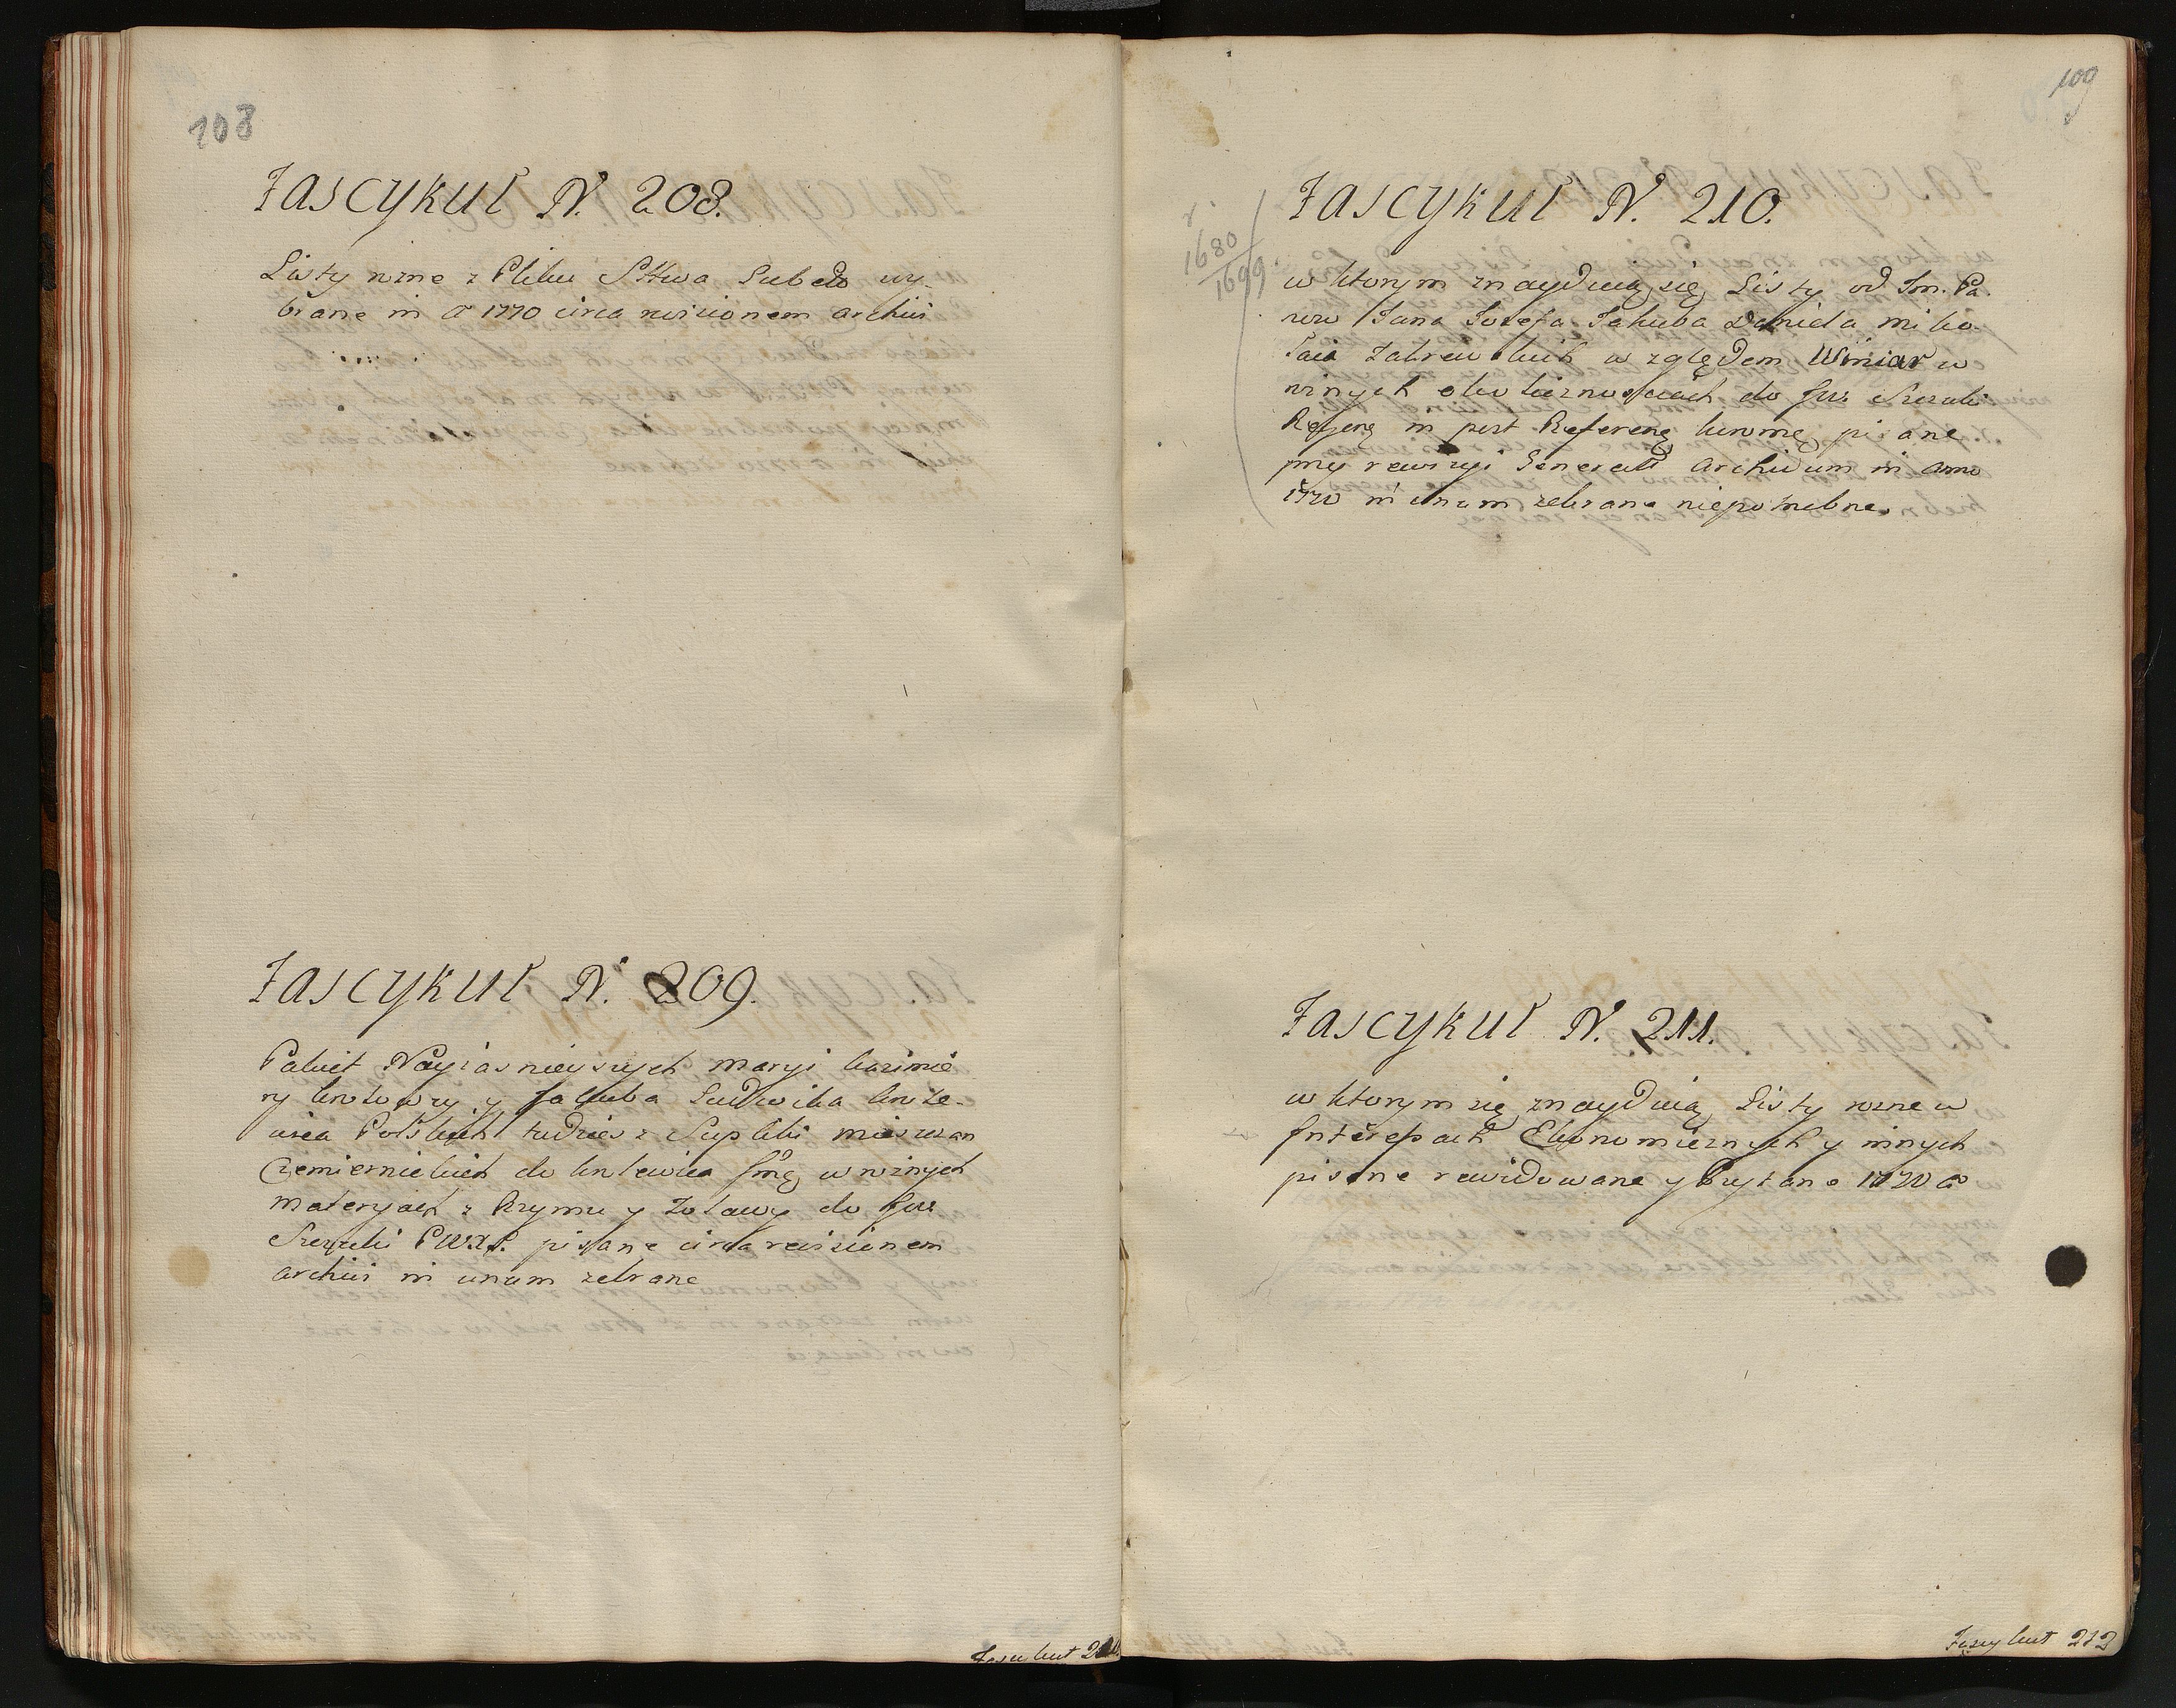 108
Fascykuł N. 208.
Listy rozne z Pliku Sttwa Lubedo wy-
brane in Ao 1770 circa revisionem archivi
Fascykuł N. 209.
Pakiet Nayiasnieyszych Maryi Kazimie
ry Krolowy y Jakuba Ludwika Krole-
wica Polskich tudziesz Supliki mieszczan
Czemiernickich do Krolewica Jmę w roznych
materyach z Rzymu y Zoławy do Jw.
Szczuki PWXL. pisane circa revisionem
archivi in unum zebrane
Fascykuł 210.
109
r.
1680
1699
Fascykuł N. 210.
w ktorym znayduią się Listy od Im. Pa.
now Jana Jozefa Jakuba Daniela Miko-
łaia względem Winiar w
roznych okolicznosciach do Jw. Szczuki
Referę in post Referenę koronnę pisane
przy rewizyi Generali Archivum in anno
1770 in unum zebrane niepotrzebne.
Fascykuł N. 211.
w ktorym się znayduią Listy rozne w
Interesach Ekonomicznych y innych
pisane rewidowane y czytane 1770 ao
Fascykuł 212